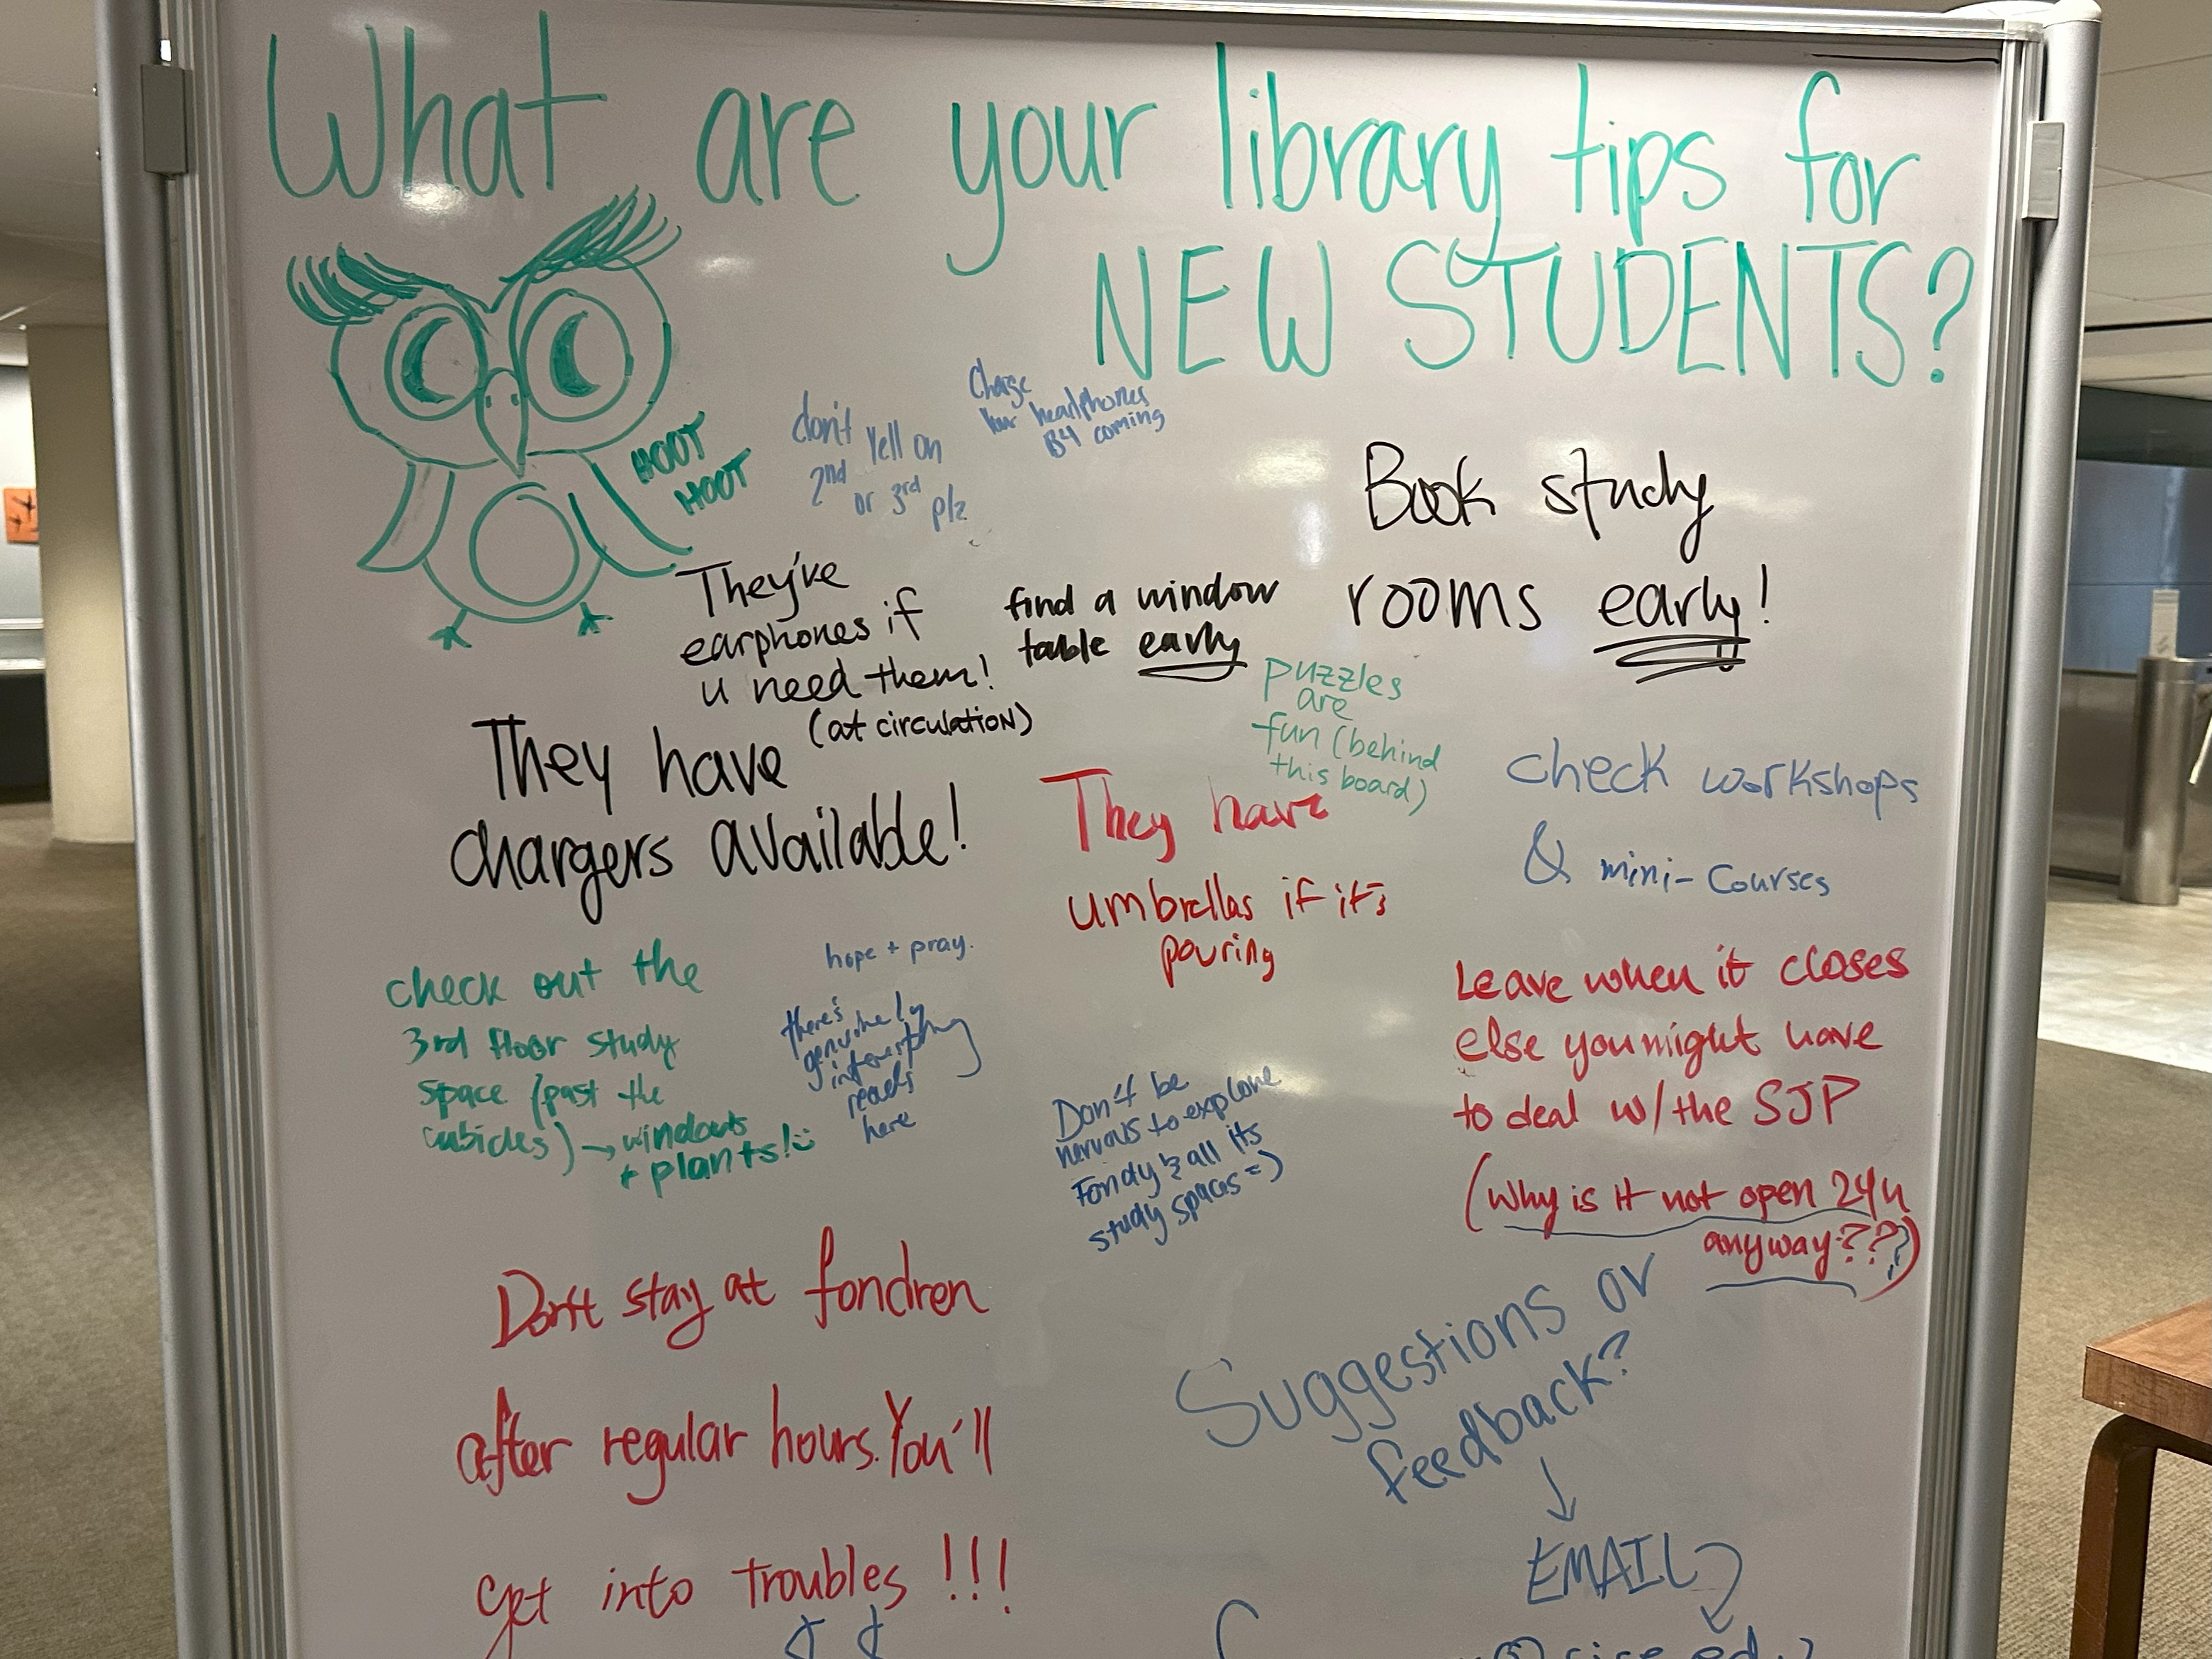 What are your library tips for
NEW STUDENTS?
HOOT
HOOT
don't yell on
2nd or 3rd plz
Charge
headphones
B4 coming
Book study
rooms early!
They've
earphones if
u need them!
(at circulation)
find a window
table early
puzzles
are
fun (behind
this board)
They have
chargers available!
They have
umbrellas if it's
pouring
check workshops
& mini-Courses
check out the
3rd floor study
space (past the
cubicles) → windows
+ plants! :)
hope + pray.
there's
genuinely
interesting
reads
here
Don't be
nervous to explore
Fondy & all its
study spaces =)
Leave when it closes
else you might have
to deal w/ the SJP
(Why is it not open 24h
anyway???)
Don't stay at fondren
after regular hours. You'll
get into troubles !!!
Suggestions or
feedback?
↓
EMAIL